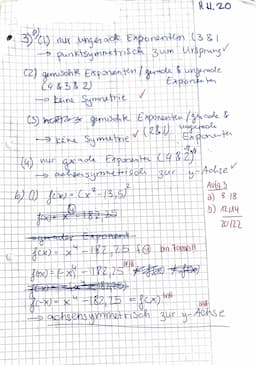 8.4.20
3) a) (1) nur ungerade Exponenten (3 & 1
→ punktsymmetrisch zum Ursprung ✓
(2) gemischte Exponenten / gerade & ungerade
(4 & 3 & 2) Exponenten
→ keine Symmetrie ✓
(3) gemischte Exponenten / gerade &
(2 & 1) ungerade
→ keine Symmetrie ✓ Exponenten
(4) nur gerade Exponenten (4 & 2)
→ achsensymmetrisch zur y-Achse ✓
Aufg. 3
a) 8 18
b) 12/14
20/22
b) (1) f(x) = (x² - (3,5)²
f(x) = x - 182,25
gerader Exponent
f(x) = x⁴ - 182,25
f(-x) = (-x)⁴ - 182,25
f(-x) = x⁴ - 182,25 = f(x)
→ achsensymmetrisch zur y-Achse